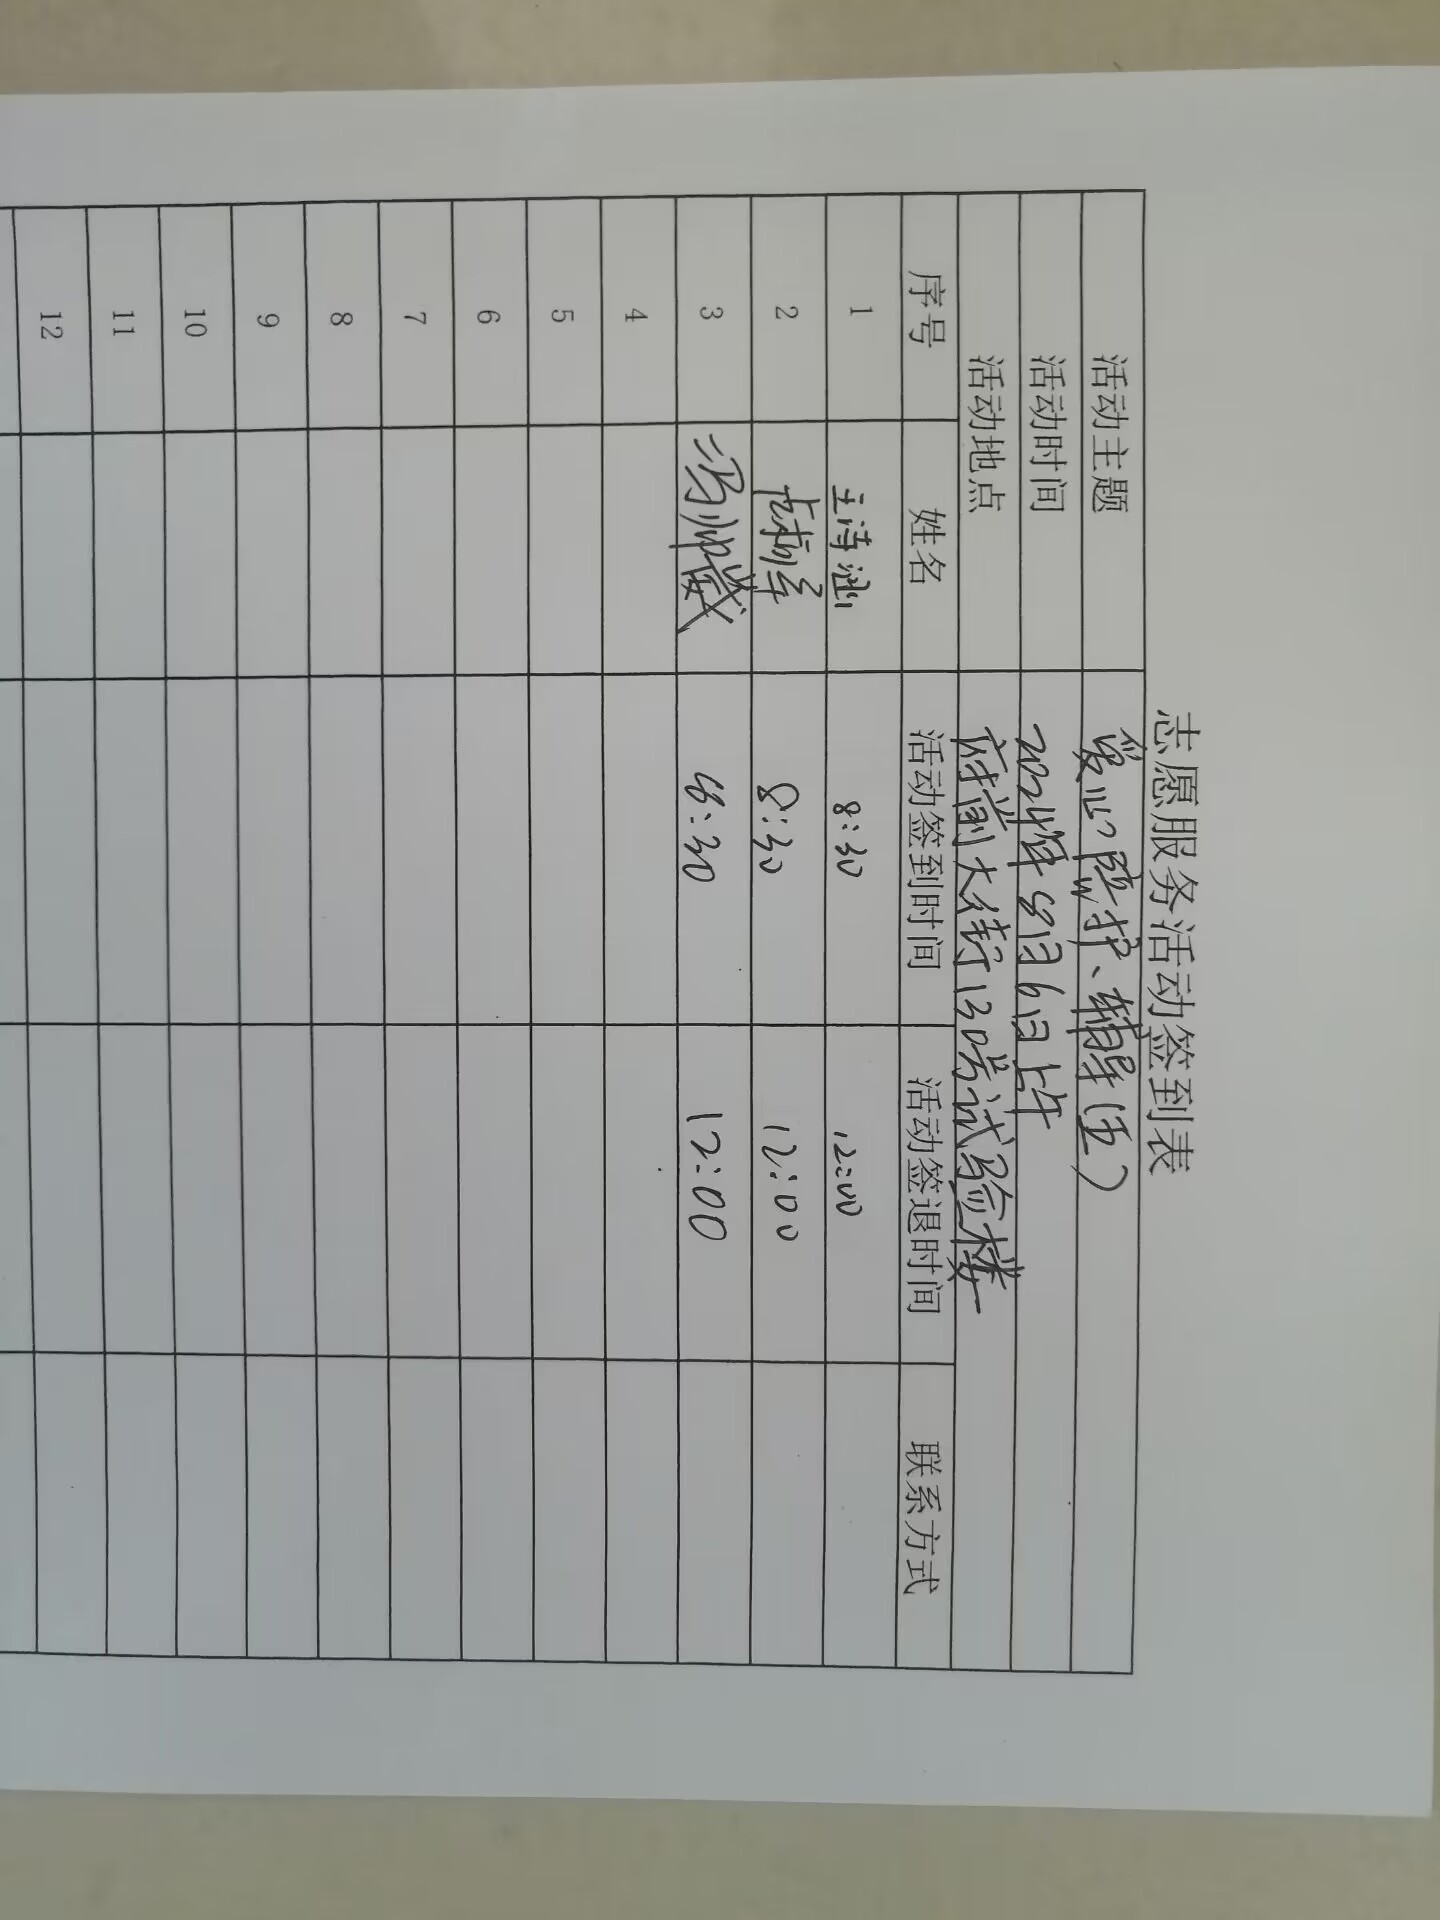 志愿服务活动签到表
活动主题 爱心陪护、辅导（五）
活动时间 2024年8月6日上午
活动地点 府前大街130号试验楼
序号 姓名 活动签到时间 活动签退时间 联系方式
1 王诗涵 8:30 12:00
2 8:30 12:00
3 冯帅葳 8:30 12:00
4
5
6
7
8
9
10
11
12